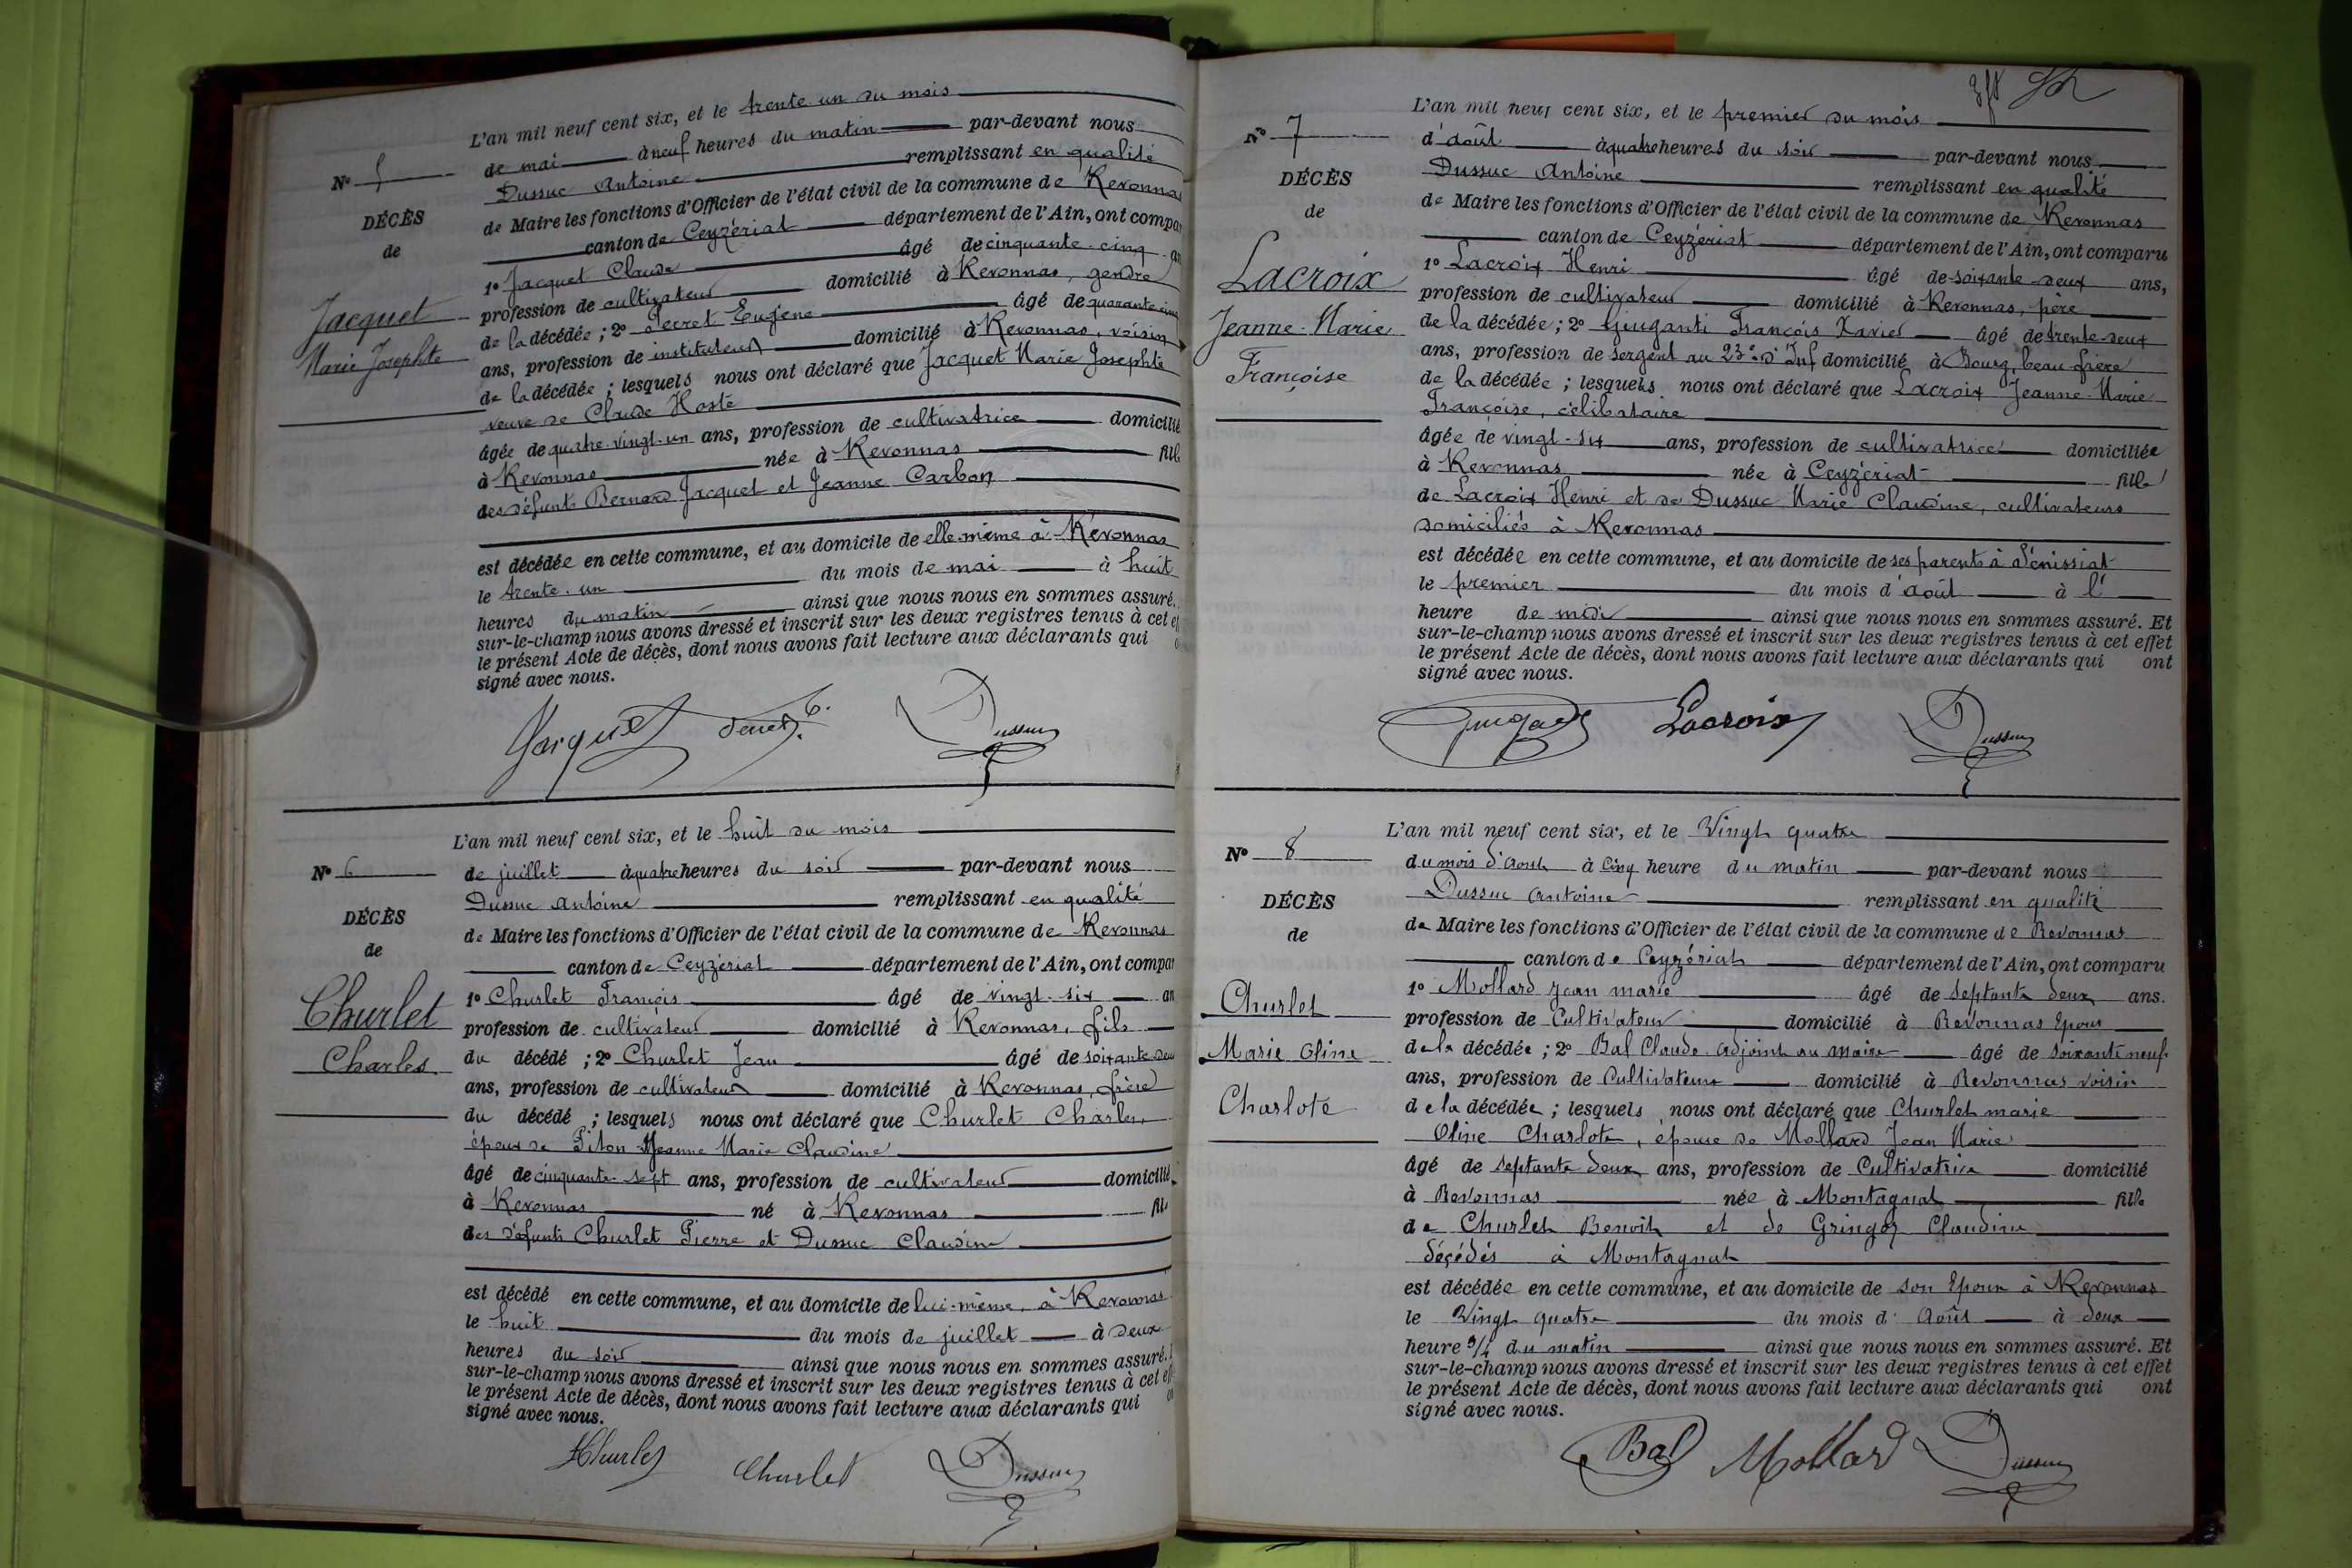 L'an mil neuf cent six, et le trente-un du mois
N° 5
de mai à neuf heures du matin par-devant nous
Dussuc Antoine remplissant en qualité
DÉCÈS
de Maire les fonctions d'Officier de l'état civil de la commune de Revonnas
de
canton de Ceyzériat département de l'Ain, ont compar
1° Jacquet Claude âgé de cinquante-cinq an
Jacquet
profession de cultivateur domicilié à Revonnas, gendre
de la décédée ; 2° Perret Eugène âgé de quarante-cinq
Marie Josephte
ans, profession de instituteur domicilié à Revonnas, voisin
de la décédée ; lesquels nous ont déclaré que Jacquet Marie Josephte
veuve de Claude Hoste
âgée de quatre-vingt-un ans, profession de cultivatrice domicilié
à Revonnas née à Revonnas fille
des défunts Bernard Jacquet et Jeanne Carbon
est décédée en cette commune, et au domicile de elle-même à Revonnas
le trente-un du mois de mai à huit
heures du matin ainsi que nous nous en sommes assuré.
sur-le-champ nous avons dressé et inscrit sur les deux registres tenus à cet ef
le présent Acte de décès, dont nous avons fait lecture aux déclarants qui o
signé avec nous.
Jacquet Perret E. Dussuc
L'an mil neuf cent six, et le huit du mois
N° 6
de juillet à quatre heures du soir par-devant nous
Dussuc Antoine remplissant en qualité
DÉCÈS
de Maire les fonctions d'Officier de l'état civil de la commune de Revonnas
de
canton de Ceyzériat département de l'Ain, ont compar
Churlet
1° Churlet François âgé de vingt-six an
profession de cultivateur domicilié à Revonnas, fils
Charles
du décédé ; 2° Churlet Jean âgé de soixante-deux
ans, profession de cultivateur domicilié à Revonnas, frère
du décédé ; lesquels nous ont déclaré que Churlet Charles,
époux de Piton Jeanne Marie Claudine
âgé de cinquante-sept ans, profession de cultivateur domicilié
à Revonnas né à Revonnas fils
des défunts Churlet Pierre et Dussuc Claudine
est décédé en cette commune, et au domicile de lui-même, à Revonnas
le huit du mois de juillet à deux
heures du soir ainsi que nous nous en sommes assuré.
sur-le-champ nous avons dressé et inscrit sur les deux registres tenus à cet eff
le présent Acte de décès, dont nous avons fait lecture aux déclarants qui on
signé avec nous.
Churlet Churlet Dussuc
L'an mil neuf cent six, et le premier du mois
N° 7
d'août à quatre heures du soir par-devant nous
Dussuc Antoine remplissant en qualité
DÉCÈS
de Maire les fonctions d'Officier de l'état civil de la commune de Revonnas
de
canton de Ceyzériat département de l'Ain, ont comparu
Lacroix
1° Lacroix Henri âgé de soixante-deux ans,
profession de cultivateur domicilié à Revonnas, père
Jeanne-Marie
de la décédée ; 2° Giuganti François Xavier âgé de trente-deux
Françoise
ans, profession de sergent au 23e d'Inf domicilié à Bourg, beau-frère
de la décédée ; lesquels nous ont déclaré que Lacroix Jeanne-Marie
Françoise, célibataire
âgée de vingt-six ans, profession de cultivatrice domiciliée
à Revonnas née à Ceyzériat fille
de Lacroix Henri et de Dussuc Marie Claudine, cultivateurs
domiciliés à Revonnas
est décédée en cette commune, et au domicile de ses parents à Sénissiat
le premier du mois d'août à l'
heure de midi ainsi que nous nous en sommes assuré. Et
sur-le-champ nous avons dressé et inscrit sur les deux registres tenus à cet effet
le présent Acte de décès, dont nous avons fait lecture aux déclarants qui ont
signé avec nous.
Lacroix Dussuc
L'an mil neuf cent six, et le Vingt quatre
N° 8
du mois d'Aout à Cinq heure du matin par-devant nous
Dussuc Antoine remplissant en qualité
DÉCÈS
de Maire les fonctions d'Officier de l'état civil de la commune de Revonnas
de
canton de Ceyzériat département de l'Ain, ont comparu
Churlet
1° Mollard Jean marie âgé de septante deux ans.
profession de Cultivateur domicilié à Revonnas Epoux
Marie Oline
de la décédée ; 2° Bal Claude adjoint au maire âgé de soixante neuf
ans, profession de Cultivateur domicilié à Revonnas voisin
Charlote
de la décédée ; lesquels nous ont déclaré que Churlet marie
Oline Charlote, épouse de Mollard Jean Marie
âgé de septante deux ans, profession de Cultivatrice domicilié
à Revonnas née à Montagnat fille
de Churlet Benoit et de Gringoz Claudine
décédés à Montagnat
est décédée en cette commune, et au domicile de son Epoux à Revonnas
le Vingt quatre du mois d'Août à deux
heure 3/4 du matin ainsi que nous nous en sommes assuré. Et
sur-le-champ nous avons dressé et inscrit sur les deux registres tenus à cet effet
le présent Acte de décès, dont nous avons fait lecture aux déclarants qui ont
signé avec nous.
Bal Mollard Dussuc